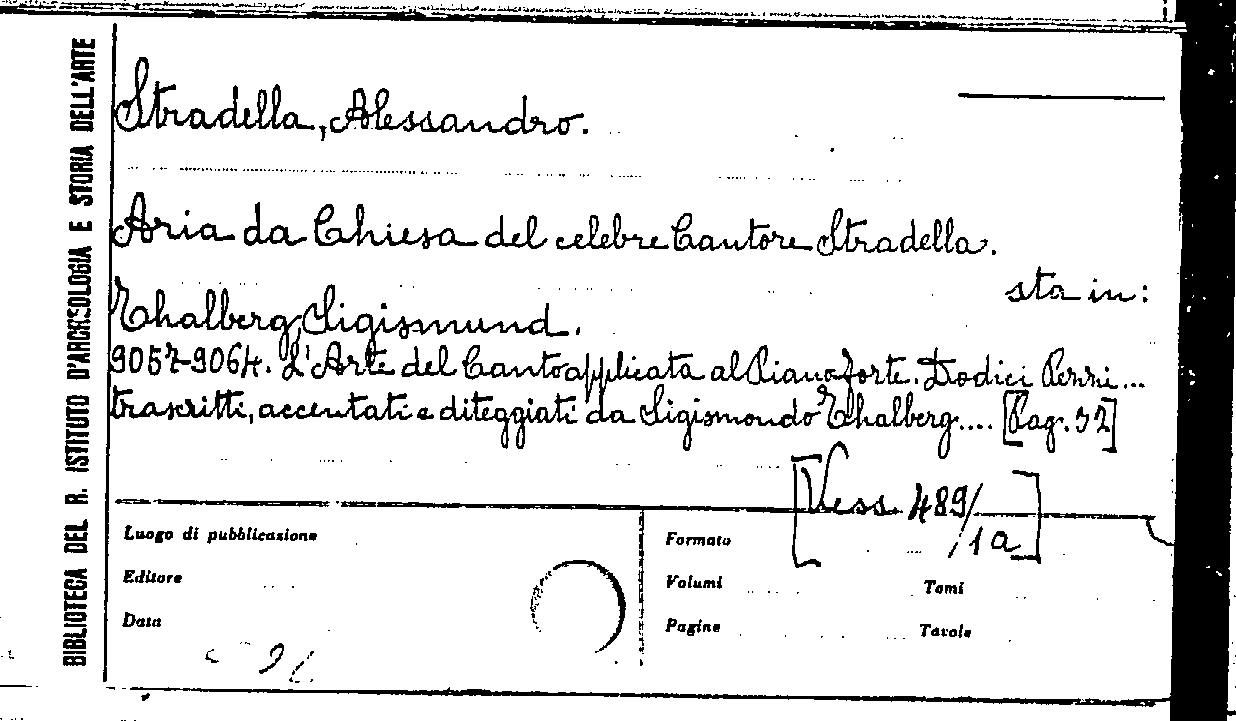 BIBLIOTECA DEL R. ISTITUTO D'ARCHEOLOGIA E STORIA DELL'ARTE
Stradella, Alessandro.
Aria da Chiesa del celebre Cantore Stradella.
sta in:
Thalberg, Sigismund.
9057-9064. L'Arte del Canto applicata al Pianoforte. Dodici Pezzi...
trascritti, accentati e diteggiati da Sigismondo Thalberg.... [Pag. 32]
[Vess. 489/1a]
Luogo di pubblicazione
Editore
Data
Formato
Volumi
Tomi
Pagine
Tavole